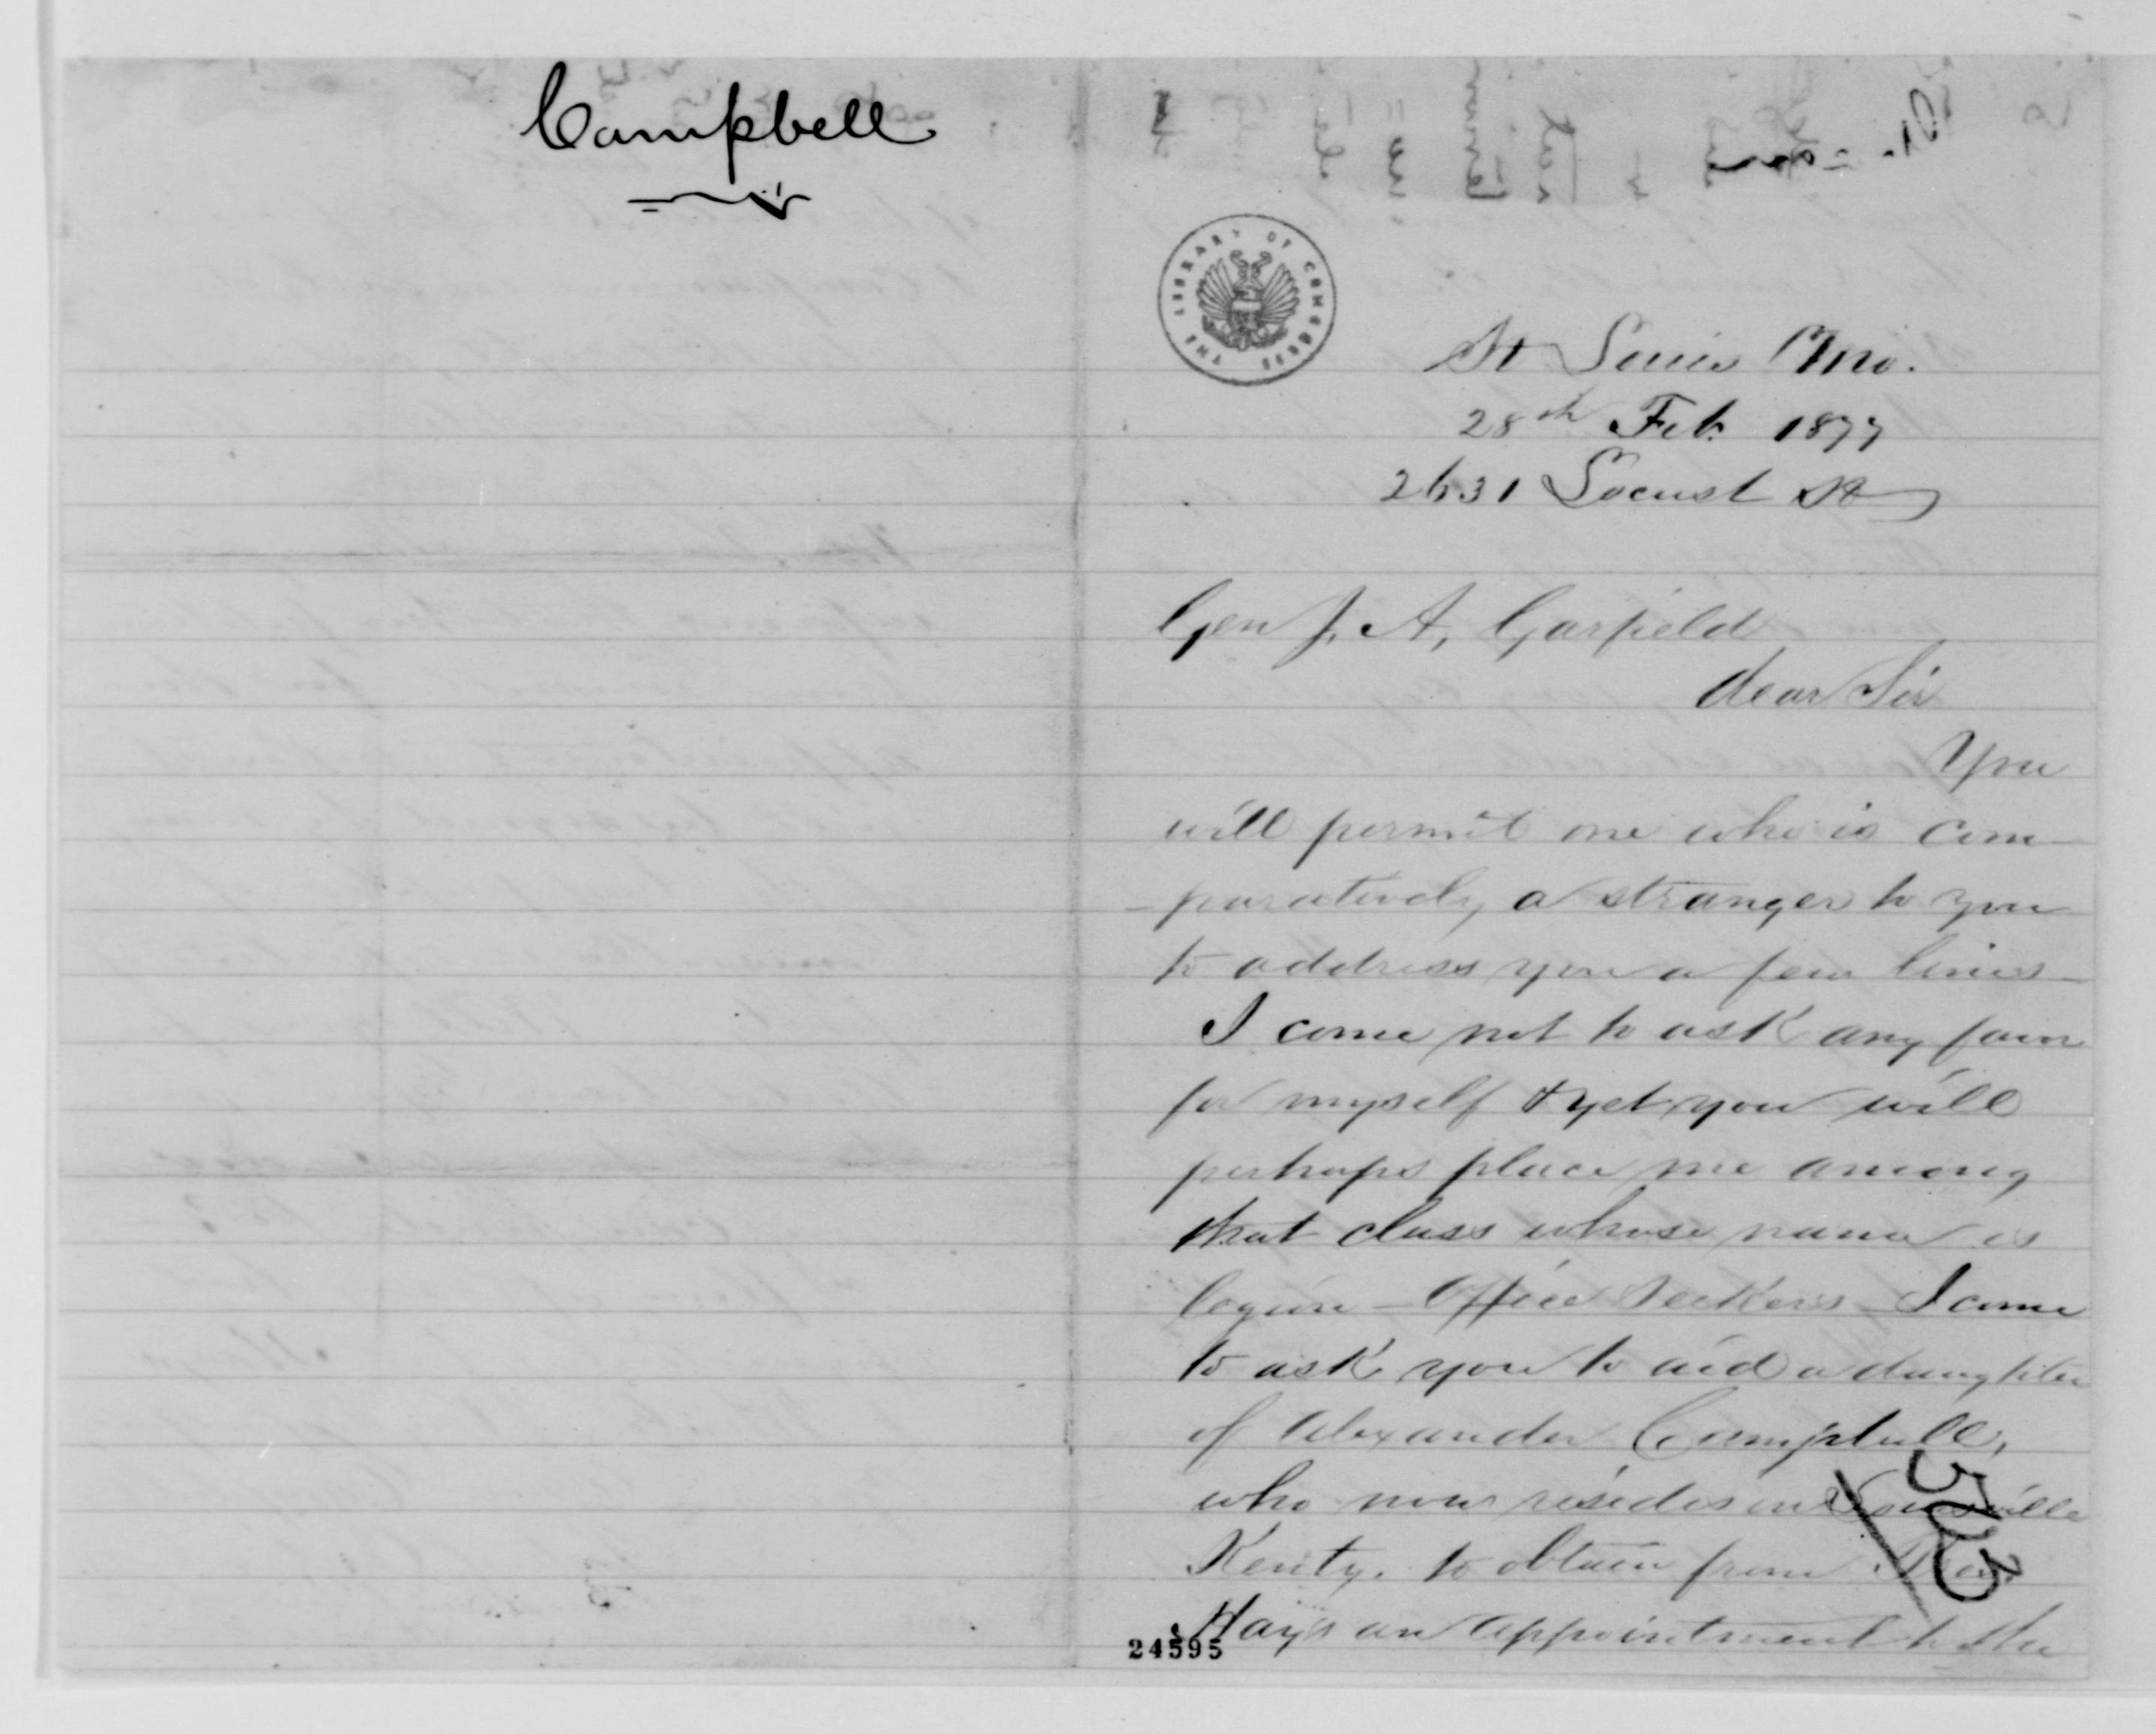 Campbell
THE LIBRARY OF CONGRESS
St Louis Mo.
28th Feb. 1877
2631 Locust St
Gen J. A, Garfield
dear Sir
You
will permit one who is com-
-paratively a stranger to you
to address you a few lines
I come not to ask any favor
for myself & yet you will
perhaps place me among
that class whose name is
legion - Office Seekers - I come
to ask you to aid a daughter
of Alexander Campbell,
who now resides in Louisville
Kenty. to obtain from Pres.
Hays an appointment to the
24595